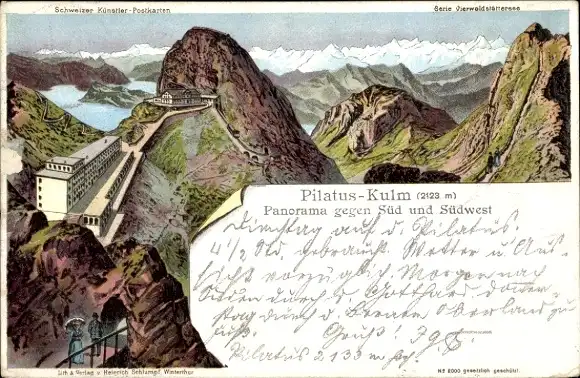 Schweizer Künstler-Postkarten
Serie Vierwaldstättersee
Pilatus-Kulm (2123 m)
Panorama gegen Süd und Südwest
Dienstag auf d. Pilatus.
4 1/2 Std. gebraucht. Wetter u. Aus-
sicht vorzüglich. Morgen nach
durch d. Gotthard
durch d. Berner Oberland zu
Fuß. Gruß!
Pilatus 2133 m
Lith & Verlag v. Heinrich Schlumpf, Winterthur
Nº 2000 gesetzlich geschützt.